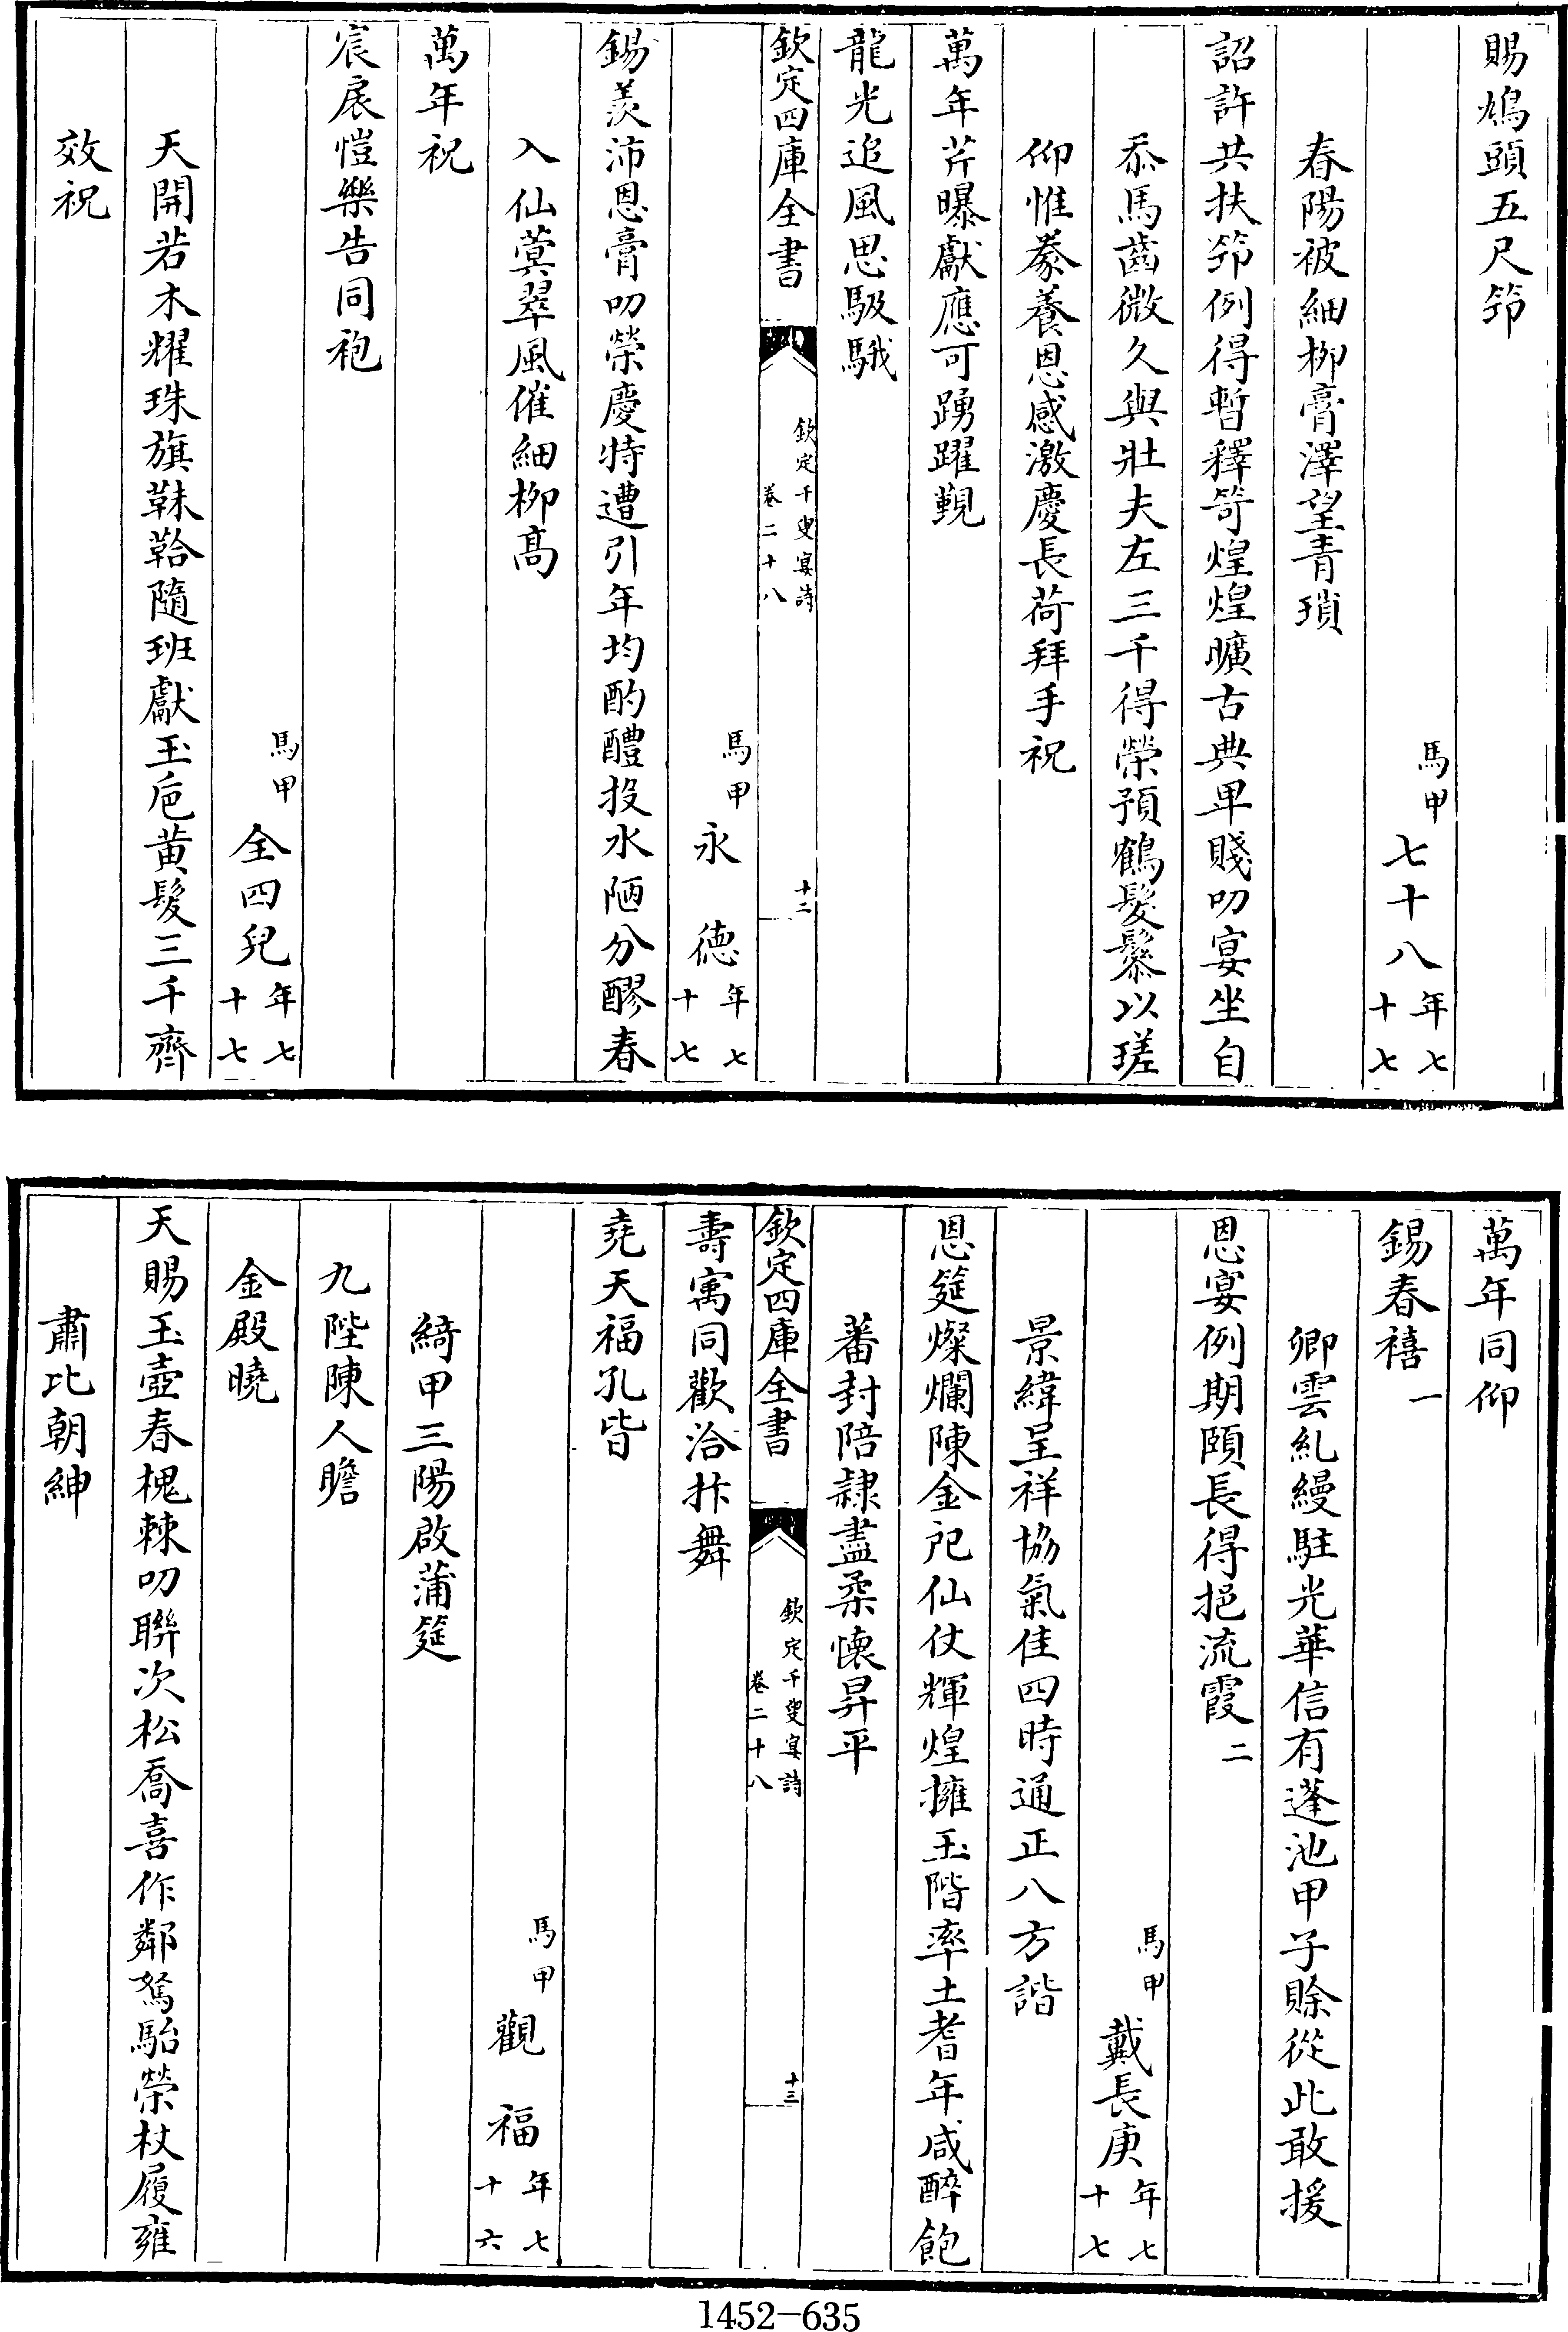 賜鳩頭五尺笻
馬甲七十八年七十七
春陽被細柳膏澤望青瑣
詔許共扶笻例得暫釋笴煌煌曠古典畀賤叨宴坐自
忝馬齒微久與壯夫左三千得榮預鶴髮鬖以瑳
仰惟豢養恩感激慶長荷拜手祝
萬年芹曝獻應可踴躍覲
龍光追風思馺騀
欽定四庫全書 欽定千叟宴詩 卷二十八 十二
馬甲永德年七十七
錫羨沛恩膏叨榮慶特遭引年均酌醴投水陋分醪春
入仙蓂翠風催細柳高
萬年祝
宸扆愷樂告同袍
馬甲全四兒年七十七
天開若木耀珠旗靺鞈隨班獻玉巵黄髮三千齊
效祝
萬年同仰
錫春禧一
卿雲糺縵駐光華信有蓬池甲子賖從此敢援
恩宴例期頤長得挹流霞二
馬甲戴長庚年七十七
景緯呈祥協氣佳四時通正八方諧
恩筵燦爛陳金戺仙仗輝煌擁玉階率土耆年咸醉飽
蕃封陪隷盡柔懷昇平
壽寓同歡洽抃舞
堯天福孔皆
欽定四庫全書 欽定千叟宴詩 卷二十八 十三
馬甲觀福年七十六
綺甲三陽啟蒲筵
九陛陳人瞻
金殿曉
天賜玉壺春槐棘叨聯次松喬喜作鄰駑駘榮杖履雍
肅比朝紳
1452-635